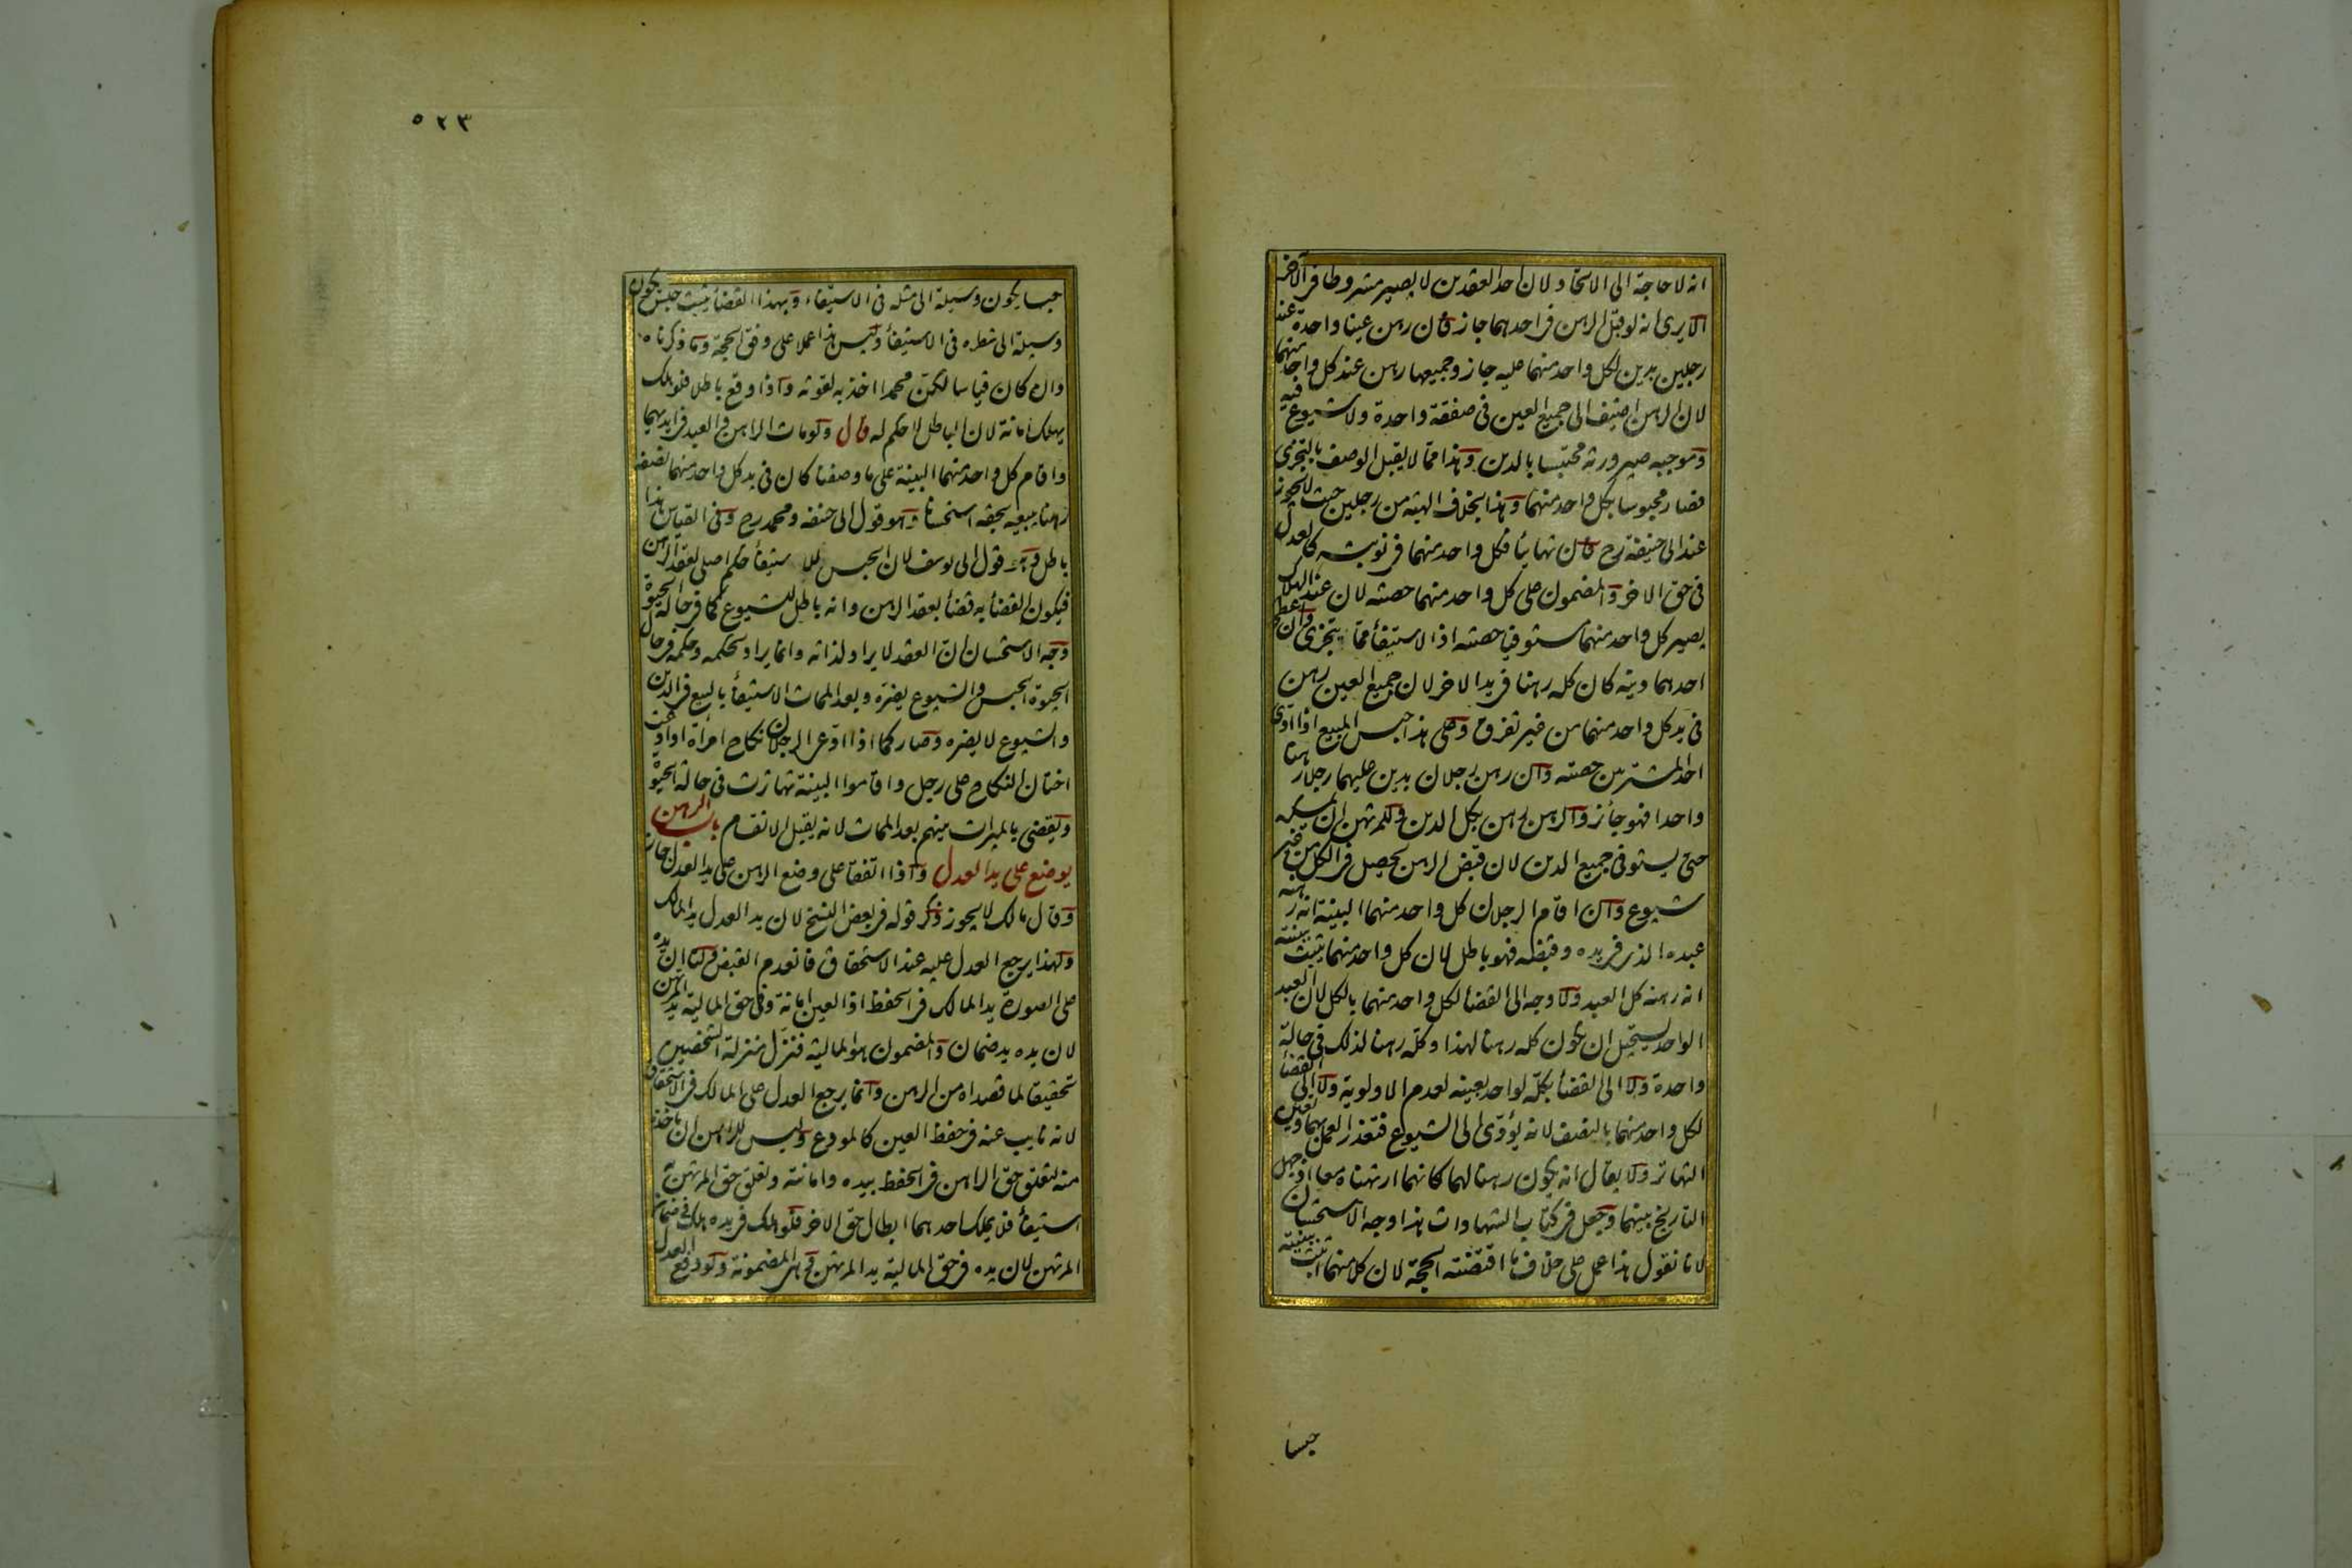 انه لا حاجة الى الاتحاد ولان احد العقدين لا يصير مشروطا فى الآخر
الا يرى انه لو قبل الرهن فى احدهما جاز فان رهن عينا واحدة عند
رجلين بدين لكل واحد منهما عليه جاز وجميعها رهن عند كل واحد منهما
لان الرهن اضيف الى جميع العين فى صفقة واحدة ولا شيوع فيه
وموجبه صيرورته محتبسا بالدين وهذا مما لا يقبل الوصف بالتجزى
فصار محبوسا بكل واحد منهما وهذا بخلاف الهبة من رجلين حيث لا يجوز
عند ابى حنيفة رح فان تهايئا فكل واحد منهما فى نوبته كالعدل
فى حق الاخر والمضمون على كل واحد منهما حصته لان عند الهلاك
يصير كل واحد منهما مستوفيا حصته اذ الاستيفأ مما يتجزى وان اعطى
احدهما دينه كان كله رهنا فى يد الاخر لان جميع العين رهن
فى يد كل واحد منهما من غير تفرق وعلى هذا حبس المبيع اذا ادى
احد المشتريين حصته وان رهن رجلان بدين عليهما رجلا رهنا
واحدا فهو جائز والرهن رهن بكل الدين وللمرتهن ان يمسكه
حتى يستوفى جميع الدين لان قبض الرهن يحصل فى الكل من غير
شيوع وان اقام الرجلان كل واحد منهما البينة انه رهنه
عبده الذى فى يده وقبضه فهو باطل لان كل واحد منهما يثبت ببينته
انه رهنه كل العبد ولا وجه الى القضأ لكل واحد منهما بالكل لان العبد
الواحد يستحيل ان يكون كله رهنا لهذا وكله رهنا لذلك فى حالة
واحدة ولا الى القضأ بكله لواحد بعينه لعدم الاولوية ولا الى القضأ
لكل واحد منهما بالنصف لانه يؤدى الى الشيوع فتعذر العمل بهما وتعين
التهاتر ولا يقال انه يكون رهنا لهما كانهما ارتهناه معا اذ جهل
التاريخ بينهما وجعل فى كتاب الشهادات هذا وجه الاستحسان
لانا نقول هذا عمل على خلاف ما اقتضته الحجة لان كلا منهما اثبت ببينته
حبسا
٥٢٣
حبسا يكون وسيلة الى مثله فى الاستيفاء وبهذا القضأ يثبت حبس يكون
وسيلة الى شطره فى الاستيفأ وليس هذا عملا على وفق الحجة وما ذكرناه
وان كان قياسا لكن محمدا اخذ به لقوته واذا وقع باطلا فلو هلك
يهلك امانة لان الباطل لا حكم له قال ولو مات الراهن والعبد فى ايديهما
واقام كل واحد منهما البينة على ما وصفنا كان فى يد كل واحد منهما نصفه
رهنا يبيعه بحقه استحسانا وهو قول ابى حنيفة ومحمد رح وفى القياس هذا
باطل وهو قول ابى يوسف لان الحبس للاستيفأ حكم اصلى لعقد الرهن
فيكون القضأ به قضأ بعقد الرهن وانه باطل للشيوع كما فى حالة الحيوة
وجه الاستحسان ان العقد لا يراد لذاته وانما يراد لحكمه وحكمه فى حال
الحيوة الحبس والشيوع يضره وبعد الممات الاستيفأ بالبيع فى الدين
والشيوع لا يضره وصار كما اذا ادعى الرجلان نكاح امرأة او ادعت
اختان النكاح على رجل واقاموا البينة تهاترت فى حالة الحيوة
ويقضى بالميراث بينهم بعد الممات لانه يقبل الانقسام باب الرهن
يوضع على يد العدل واذا اتفقا على وضع الرهن على يد العدل جاز
وقال مالك لا يجوز ذكر قوله فى بعض النسخ لان يد العدل يد المالك
ولهذا يرجع العدل عليه عند الاستحقاق فانعدم القبض ولنا ان يده
على الصورة يد المالك فى الحفظ اذ العين امانة وفى حق المالية يد المرتهن
لان يده يد ضمان والمضمون هو المالية فنزل منزلة الشخصين
تحقيقا لما قصداه من الرهن وانما يرجع العدل على المالك فى الاستحقاق
لانه نايب عنه فى حفظ العين كالمودع وليس للراهن ان ياخذه
منه لتعلق حق الراهن فى الحفظ بيده وامانته وتعلق حق المرتهن به
استيفأ فلا يملك احدهما ابطال حق الاخر فلو هلك فى يده هلك فى ضمان
المرتهن لان يده فى حق المالية يد المرتهن وهى المضمونة ولو دفع العدل